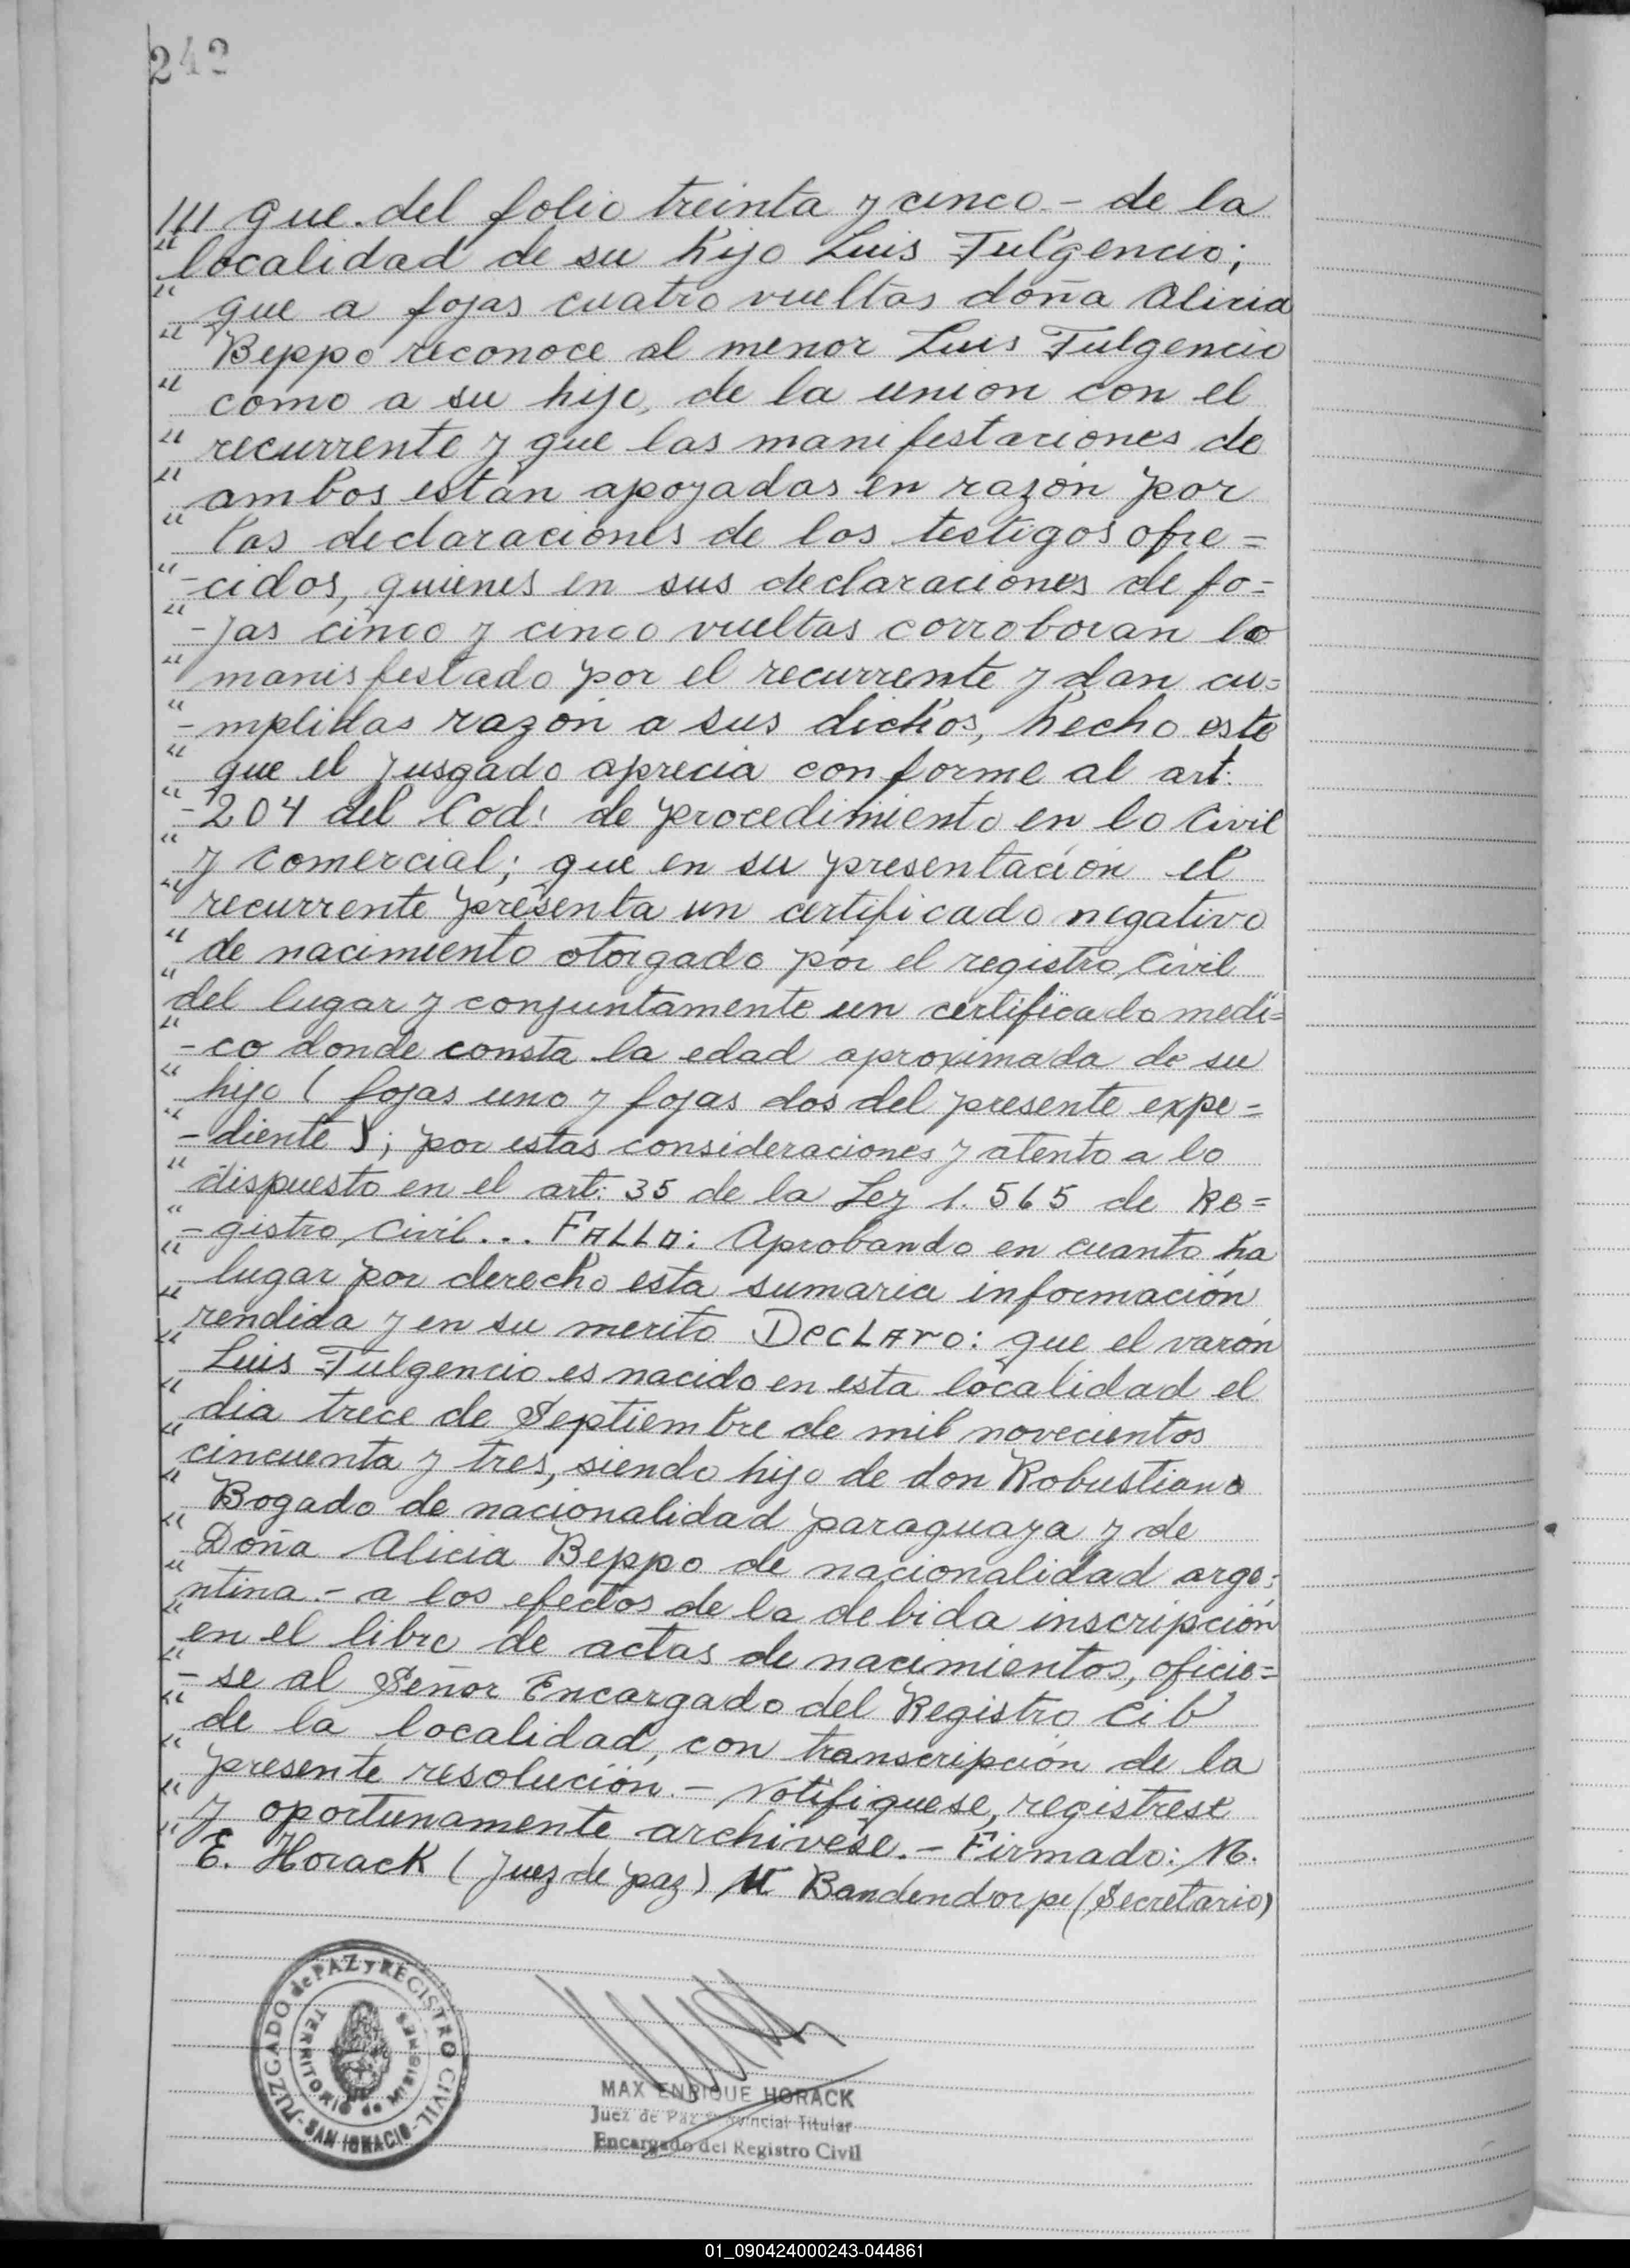 242
/// que del folio treinta y cinco.- de la
" localidad de su hijo Luis Fulgencio;
" que a fojas cuatro vueltas doña Alicia
" Beppo reconoce al menor Luis Fulgencio
" como a su hijo, de la union con el
" recurrente y que las manifestaciones de
" ambos están apoyadas en razón por
" las declaraciones de los testigos ofre=
" -cidos, quienes en sus declaraciones de fo=
" -jas cinco y cinco vueltas corroboran lo
" manisfestado por el recurrente y dan cu=
" -mplidas razón a sus dichos, hecho este
" que el jusgado aprecia conforme al art:
" -204 del Cod: de procedimiento en lo Civil
" y comercial; que en su presentación el
" recurrente presenta un certificado negativo
" de nacimiento otorgado por el registro Civil
" del lugar y conjuntamente un certificado medi=
" -co donde consta la edad aproximada de su
" hijo ( fojas uno y fojas dos del presente expe=
" -diente ); por estas consideraciones y atento a lo
" dispuesto en el art: 35 de la Ley 1.565 de Re=
" -gistro Civil... FALLO: Aprobando en cuanto ha
" lugar por derecho esta sumaria información
" rendida y en su merito DECLARO: que el varón
" Luis Fulgencio es nacido en esta localidad el
" dia trece de Septiembre de mil novecientos
" cincuenta y tres, siendo hijo de don Robustiano
" Bogado de nacionalidad paraguaya y de
" Doña Alicia Beppo de nacionalidad arge=
" ntina.- a los efectos de la debida inscripción
" en el libro de actas de nacimientos, oficie=
" -se al Señor Encargado del Registro Cib
" de la localidad, con transcripción de la
" presente resolución.- Notifiquese, registrese
" y oportunamente archivese.- Firmado: M.
" E. Horack ( Juez de paz) Bandendorpe (Secretario)
JUZGADO de PAZ y REGISTRO CIVIL
TERRITORIO de MISIONES
- SAN IGNACIO -
MAX ENRIQUE HORACK
Juez de Paz Provincial Titular
Encargado del Registro Civil
01_090424000243-044861